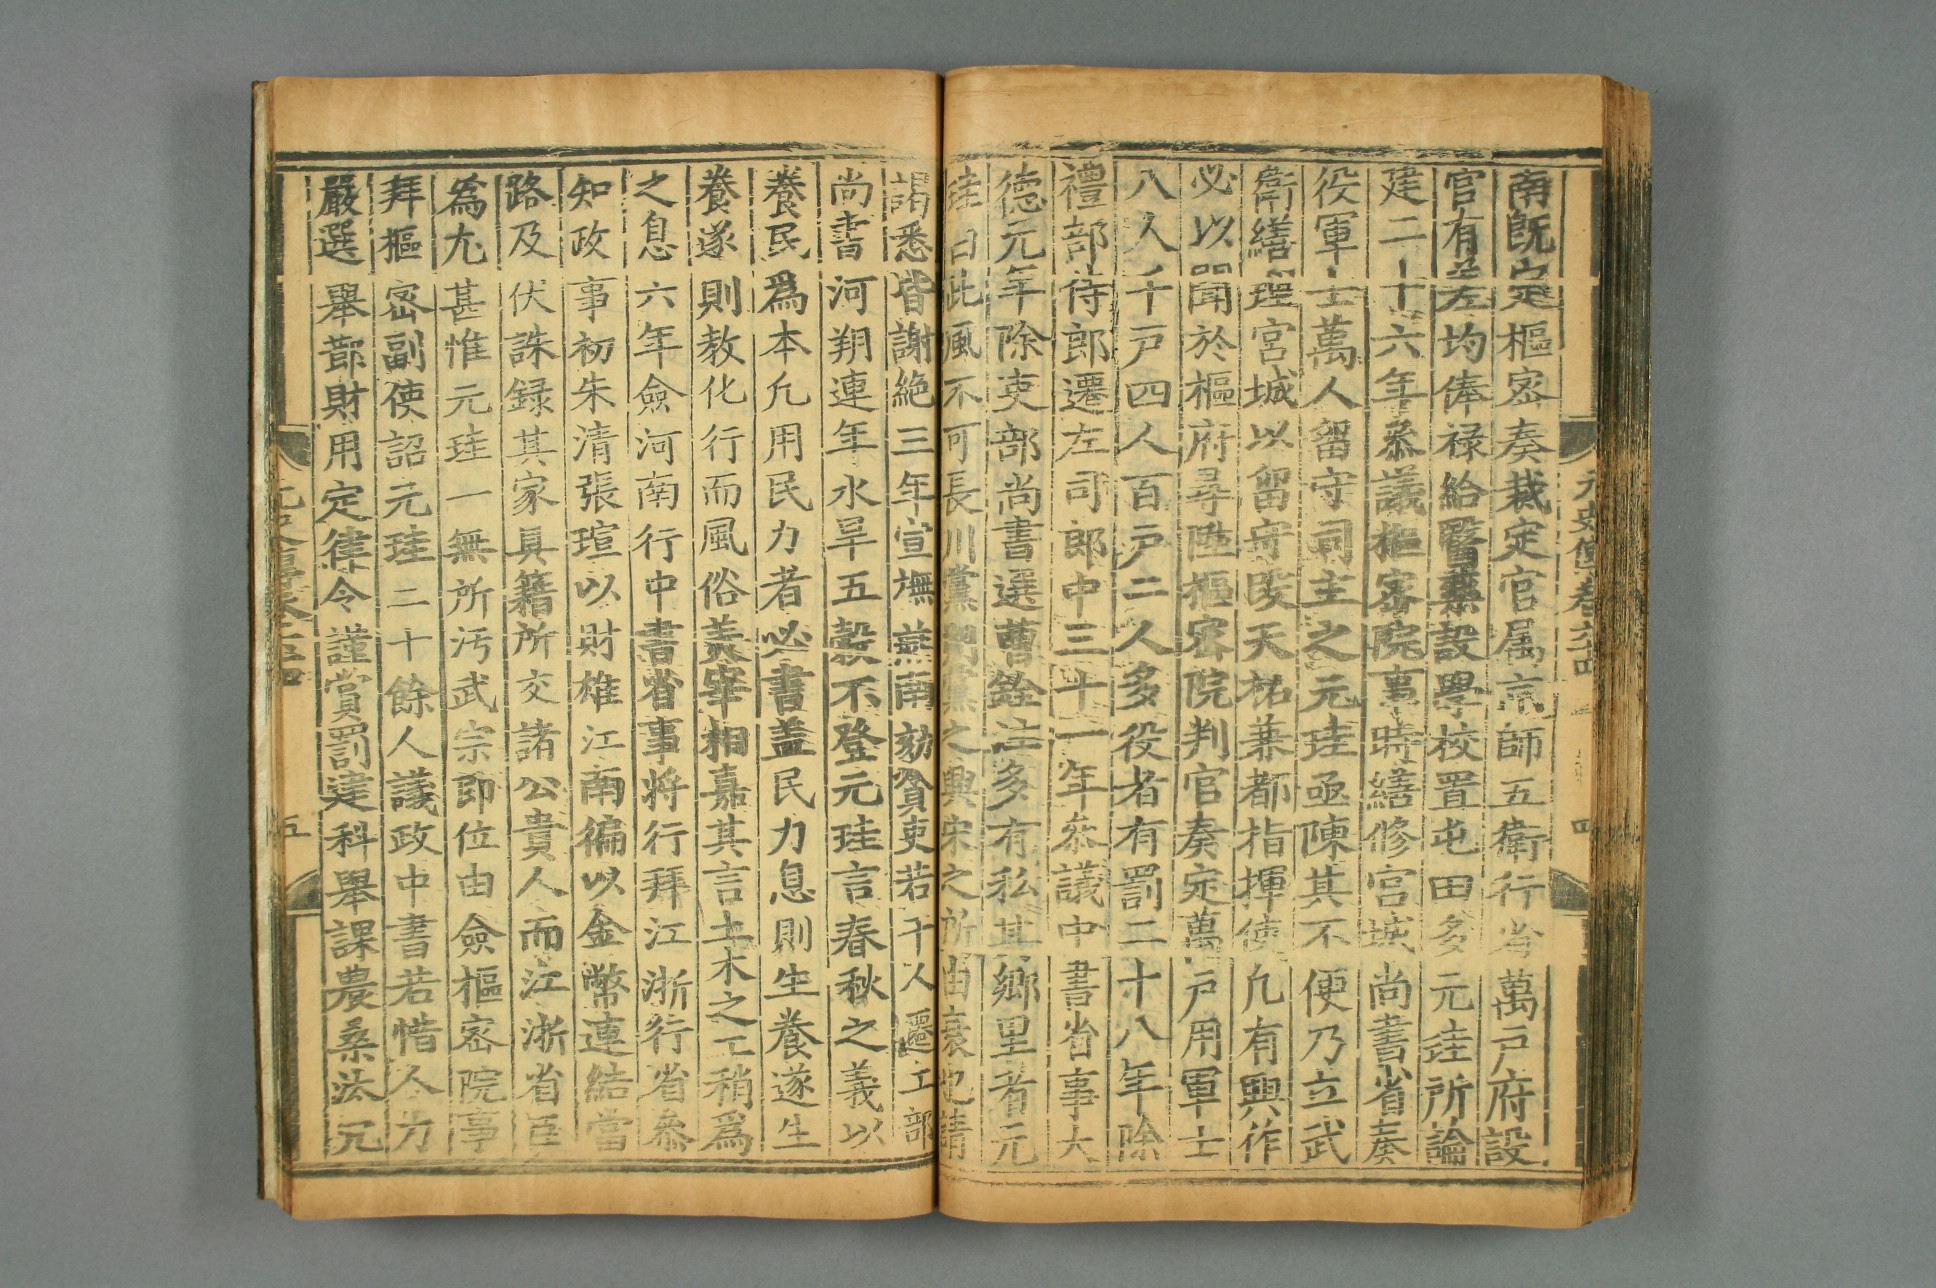 南既定樞密奏裁定官属京師五衛行省萬戸府設
官有差均俸禄給醫藥設學校置屯田多元珪所論
建二十六年叅議樞密院事時繕修宫城尚書省奏
役軍士萬人留守司主之元珪亟陳其不便乃立武
衛繕理宫城以留守段天祐兼都指揮使凡有興作
必以聞於樞府尋陞樞密院判官奏定萬戸用軍士
八人千戸四人百戸二人多役者有罰二十八年除
禮部侍郎遷左司郎中三十一年叅議中書省事大
德元年除吏部尚書選曹銓注多有私其鄉里者元
珪曰此風不可長川黨朔黨之興宋之所由衰也請
謁悉皆謝絶三年宣撫燕南劾貪吏若干人遷工部
尚書河朔連年水旱五穀不登元珪言春秋之義以
養民爲本凡用民力者必書盖民力息則生養遂生
養遂則教化行而風俗羙宰相嘉其言土木之工稍爲
之息六年僉河南行中書省事将行拜江浙行省叅
知政事初朱清張瑄以財雄江南徧以金幣連結當
路及伏誅録其家具籍所交諸公貴人而江浙省臣
爲尤甚惟元珪一無所汚武宗即位由僉樞密院事
拜樞密副使詔元珪二十餘人議政中書若惜人力
嚴選舉節財用定律令謹賞罰建科舉課農桑汰冗
元史傳卷六十四
五
元史傳卷六十四
四